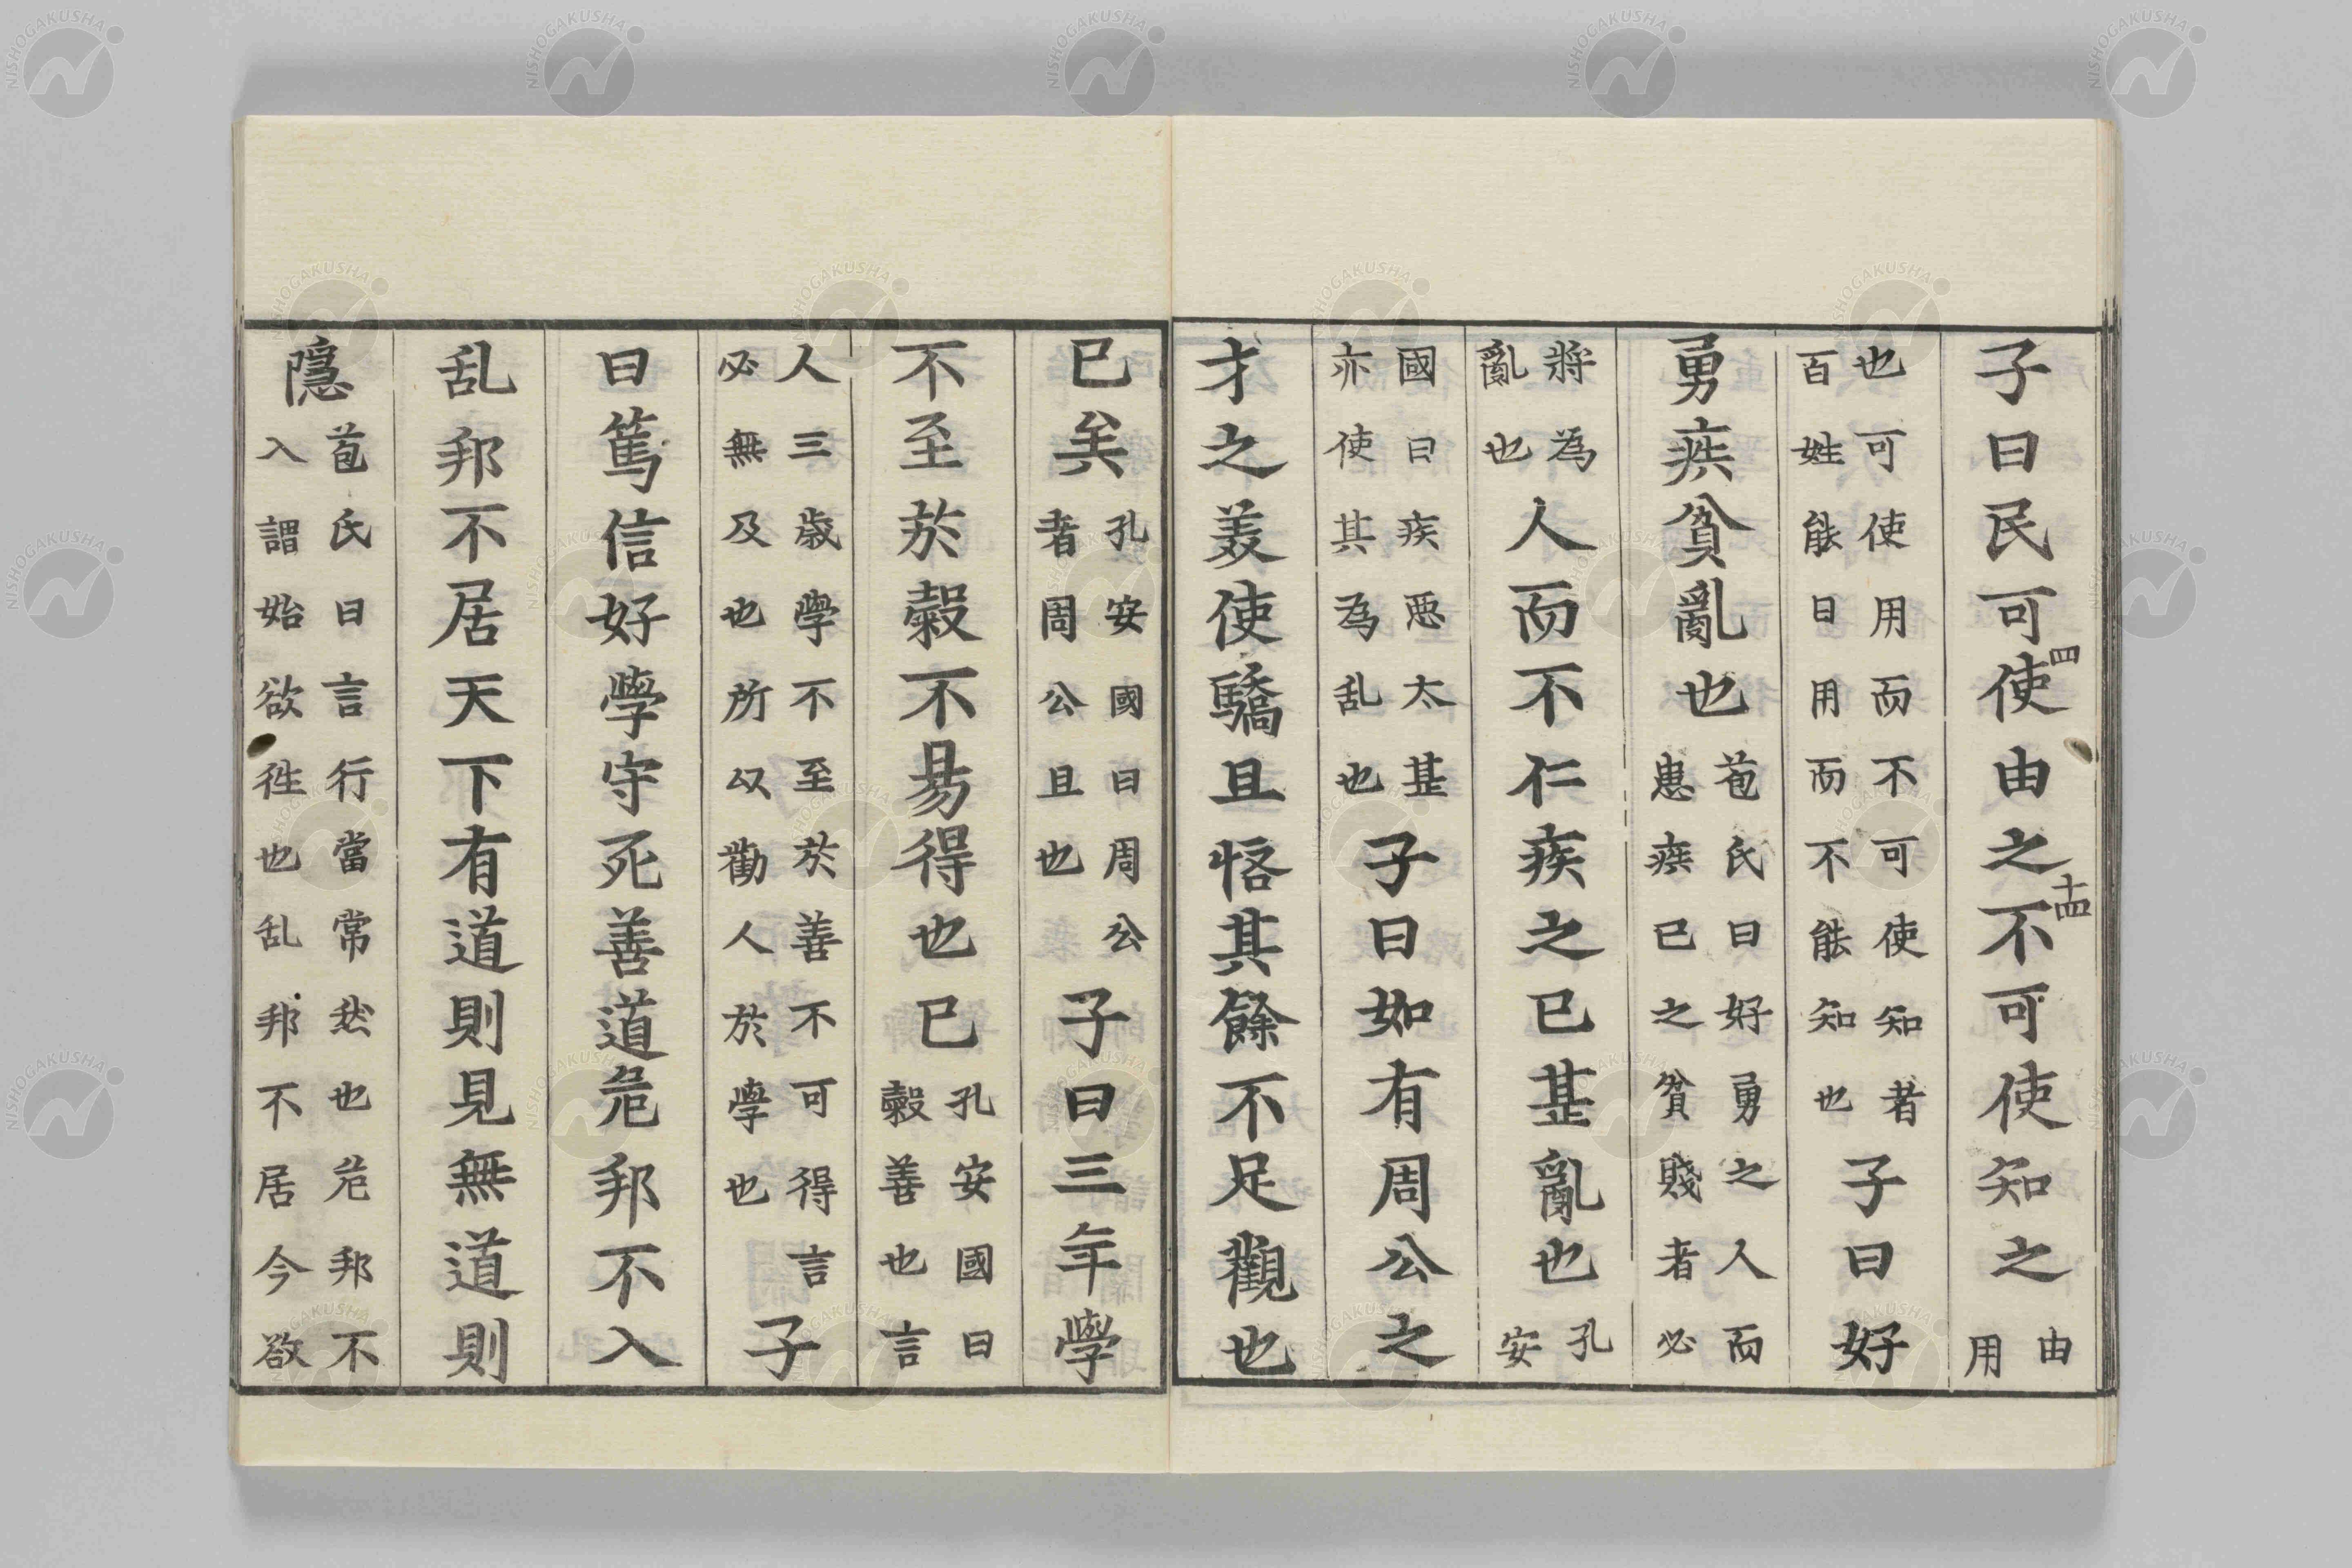 子曰民可使由之不可使知之由用
也可使用而不可使知者百姓能日用而不能知也子曰好
勇疾貧亂也苞氏曰好勇之人而患疾已之貧賤者必
將為亂也人而不仁疾之已甚亂也孔安
國曰疾惡太甚亦使其為乱也子曰如有周公之
才之美使驕且悋其餘不足觀也
已矣孔安國曰周公者周公且也子曰三年學
不至於穀不易得也已孔安國曰穀善也言
人三歲學不至於善不可得言必無及也所以勸人於學也子
曰篤信好學守死善道危邦不入
乱邦不居天下有道則見無道則
隱苞氏曰言行當常然也危邦不入謂始欲往也乱邦不居今欲
四
十四
NISHOGAKUSHA